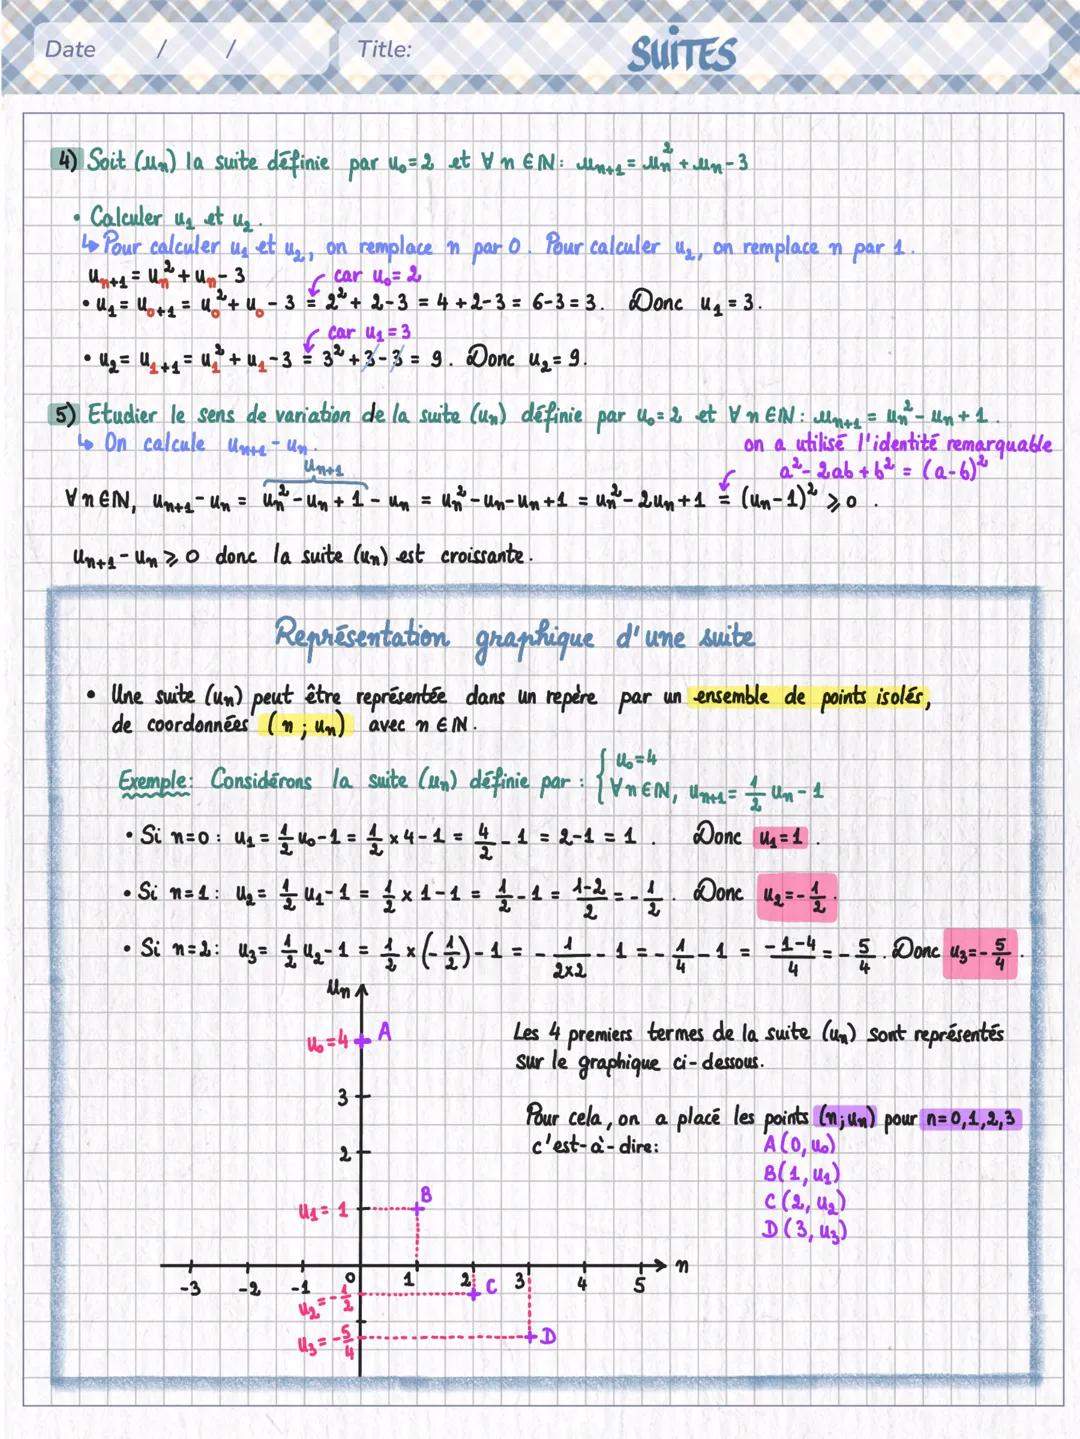 Date / / Title: SUITES
4) Soit (un) la suite définie par u₀=2 et ∀ n ∈ ℕ: uₙ₊₁ = uₙ² + uₙ - 3
• Calculer u₁ et u₂.
↳ Pour calculer u₁ et u₂, on remplace n par 0. Pour calculer u₂, on remplace n par 1.
uₙ₊₁ = uₙ² + uₙ - 3
car u₀ = 2
• u₁ = u₀₊₁ = u₀² + u₀ - 3 = 2² + 2 - 3 = 4 + 2 - 3 = 6 - 3 = 3. Donc u₁ = 3.
car u₁ = 3
• u₂ = u₁₊₁ = u₁² + u₁ - 3 = 3² + 3 - 3 = 9. Donc u₂ = 9.
5) Etudier le sens de variation de la suite (uₙ) définie par u₀=2 et ∀ n ∈ ℕ: uₙ₊₁ = uₙ² - uₙ + 1.
↳ On calcule uₙ₊₁ - uₙ.
on a utilisé l'identité remarquable
uₙ₊₁
a² - 2ab + b² = (a-b)²
∀ n ∈ ℕ, uₙ₊₁ - uₙ = uₙ² - uₙ + 1 - uₙ = uₙ² - uₙ - uₙ + 1 = uₙ² - 2uₙ + 1 = (uₙ - 1)² ⩾ 0.
uₙ₊₁ - uₙ ⩾ 0 donc la suite (uₙ) est croissante.
Représentation graphique d'une suite
• Une suite (uₙ) peut être représentée dans un repère par un ensemble de points isolés,
de coordonnées (n ; uₙ) avec n ∈ ℕ.
Exemple: Considérons la suite (uₙ) définie par : { u₀ = 4
∀ n ∈ ℕ, uₙ₊₁ = 1/2 uₙ - 1
• Si n=0 : u₁ = 1/2 u₀ - 1 = 1/2 × 4 - 1 = 4/2 - 1 = 2 - 1 = 1. Donc u₁ = 1.
• Si n=1 : u₂ = 1/2 u₁ - 1 = 1/2 × 1 - 1 = 1/2 - 1 = (1-2)/2 = -1/2. Donc u₂ = -1/2.
• Si n=2 : u₃ = 1/2 u₂ - 1 = 1/2 × (-1/2) - 1 = -1/(2×2) - 1 = -1/4 - 1 = (-1-4)/4 = -5/4. Donc u₃ = -5/4.
uₙ
u₀ = 4 A
Les 4 premiers termes de la suite (uₙ) sont représentés
sur le graphique ci-dessous.
3
Pour cela, on a placé les points (n; uₙ) pour n=0,1,2,3
c'est-à-dire:
2
A(0, u₀)
B(1, u₁)
C(2, u₂)
D(3, u₃)
B
u₁ = 1
n
-3 -2 -1 0 1 2 3 4 5
C
u₂ = -1/2
u₃ = -5/4
D